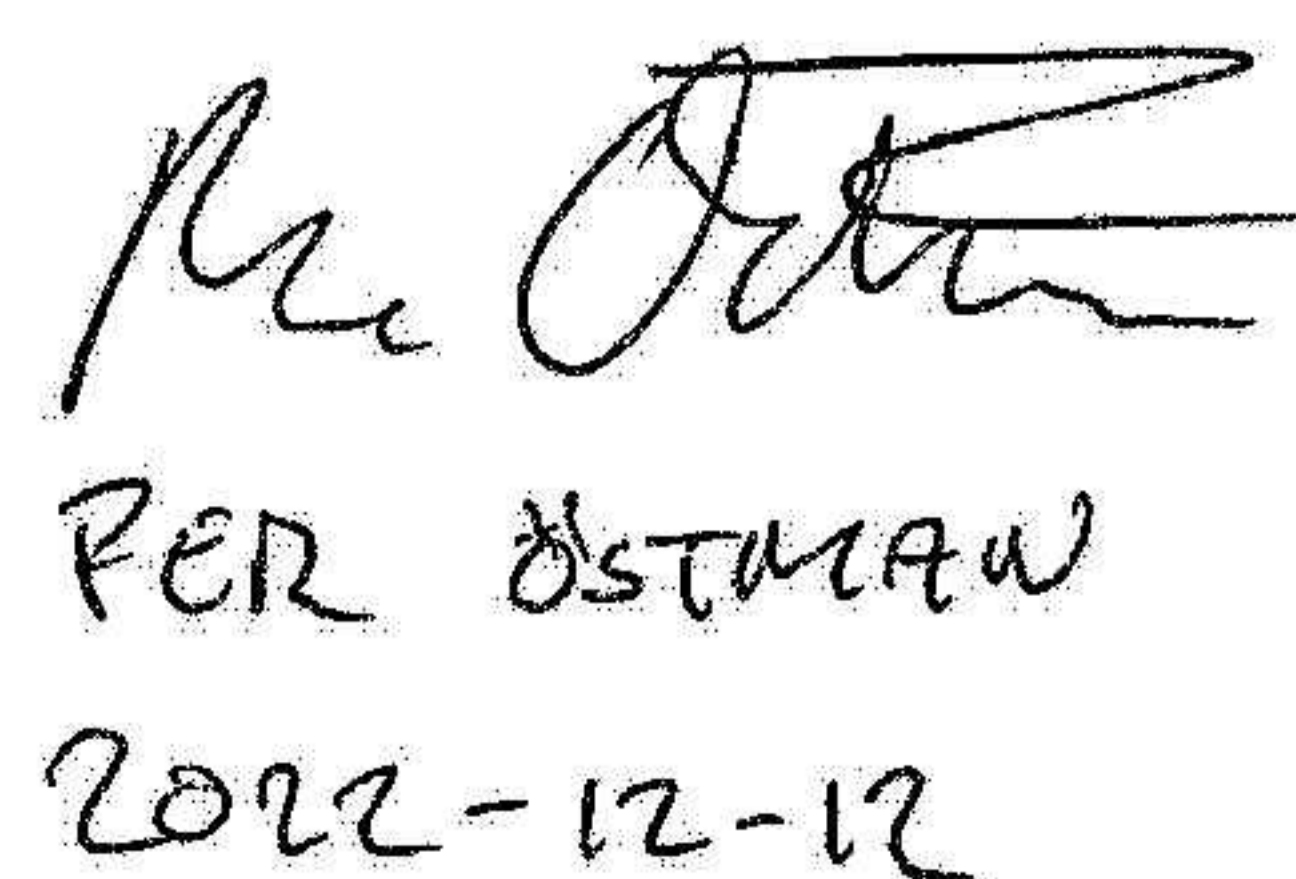 Per Östman
PER ÖSTMAN
2022-12-12